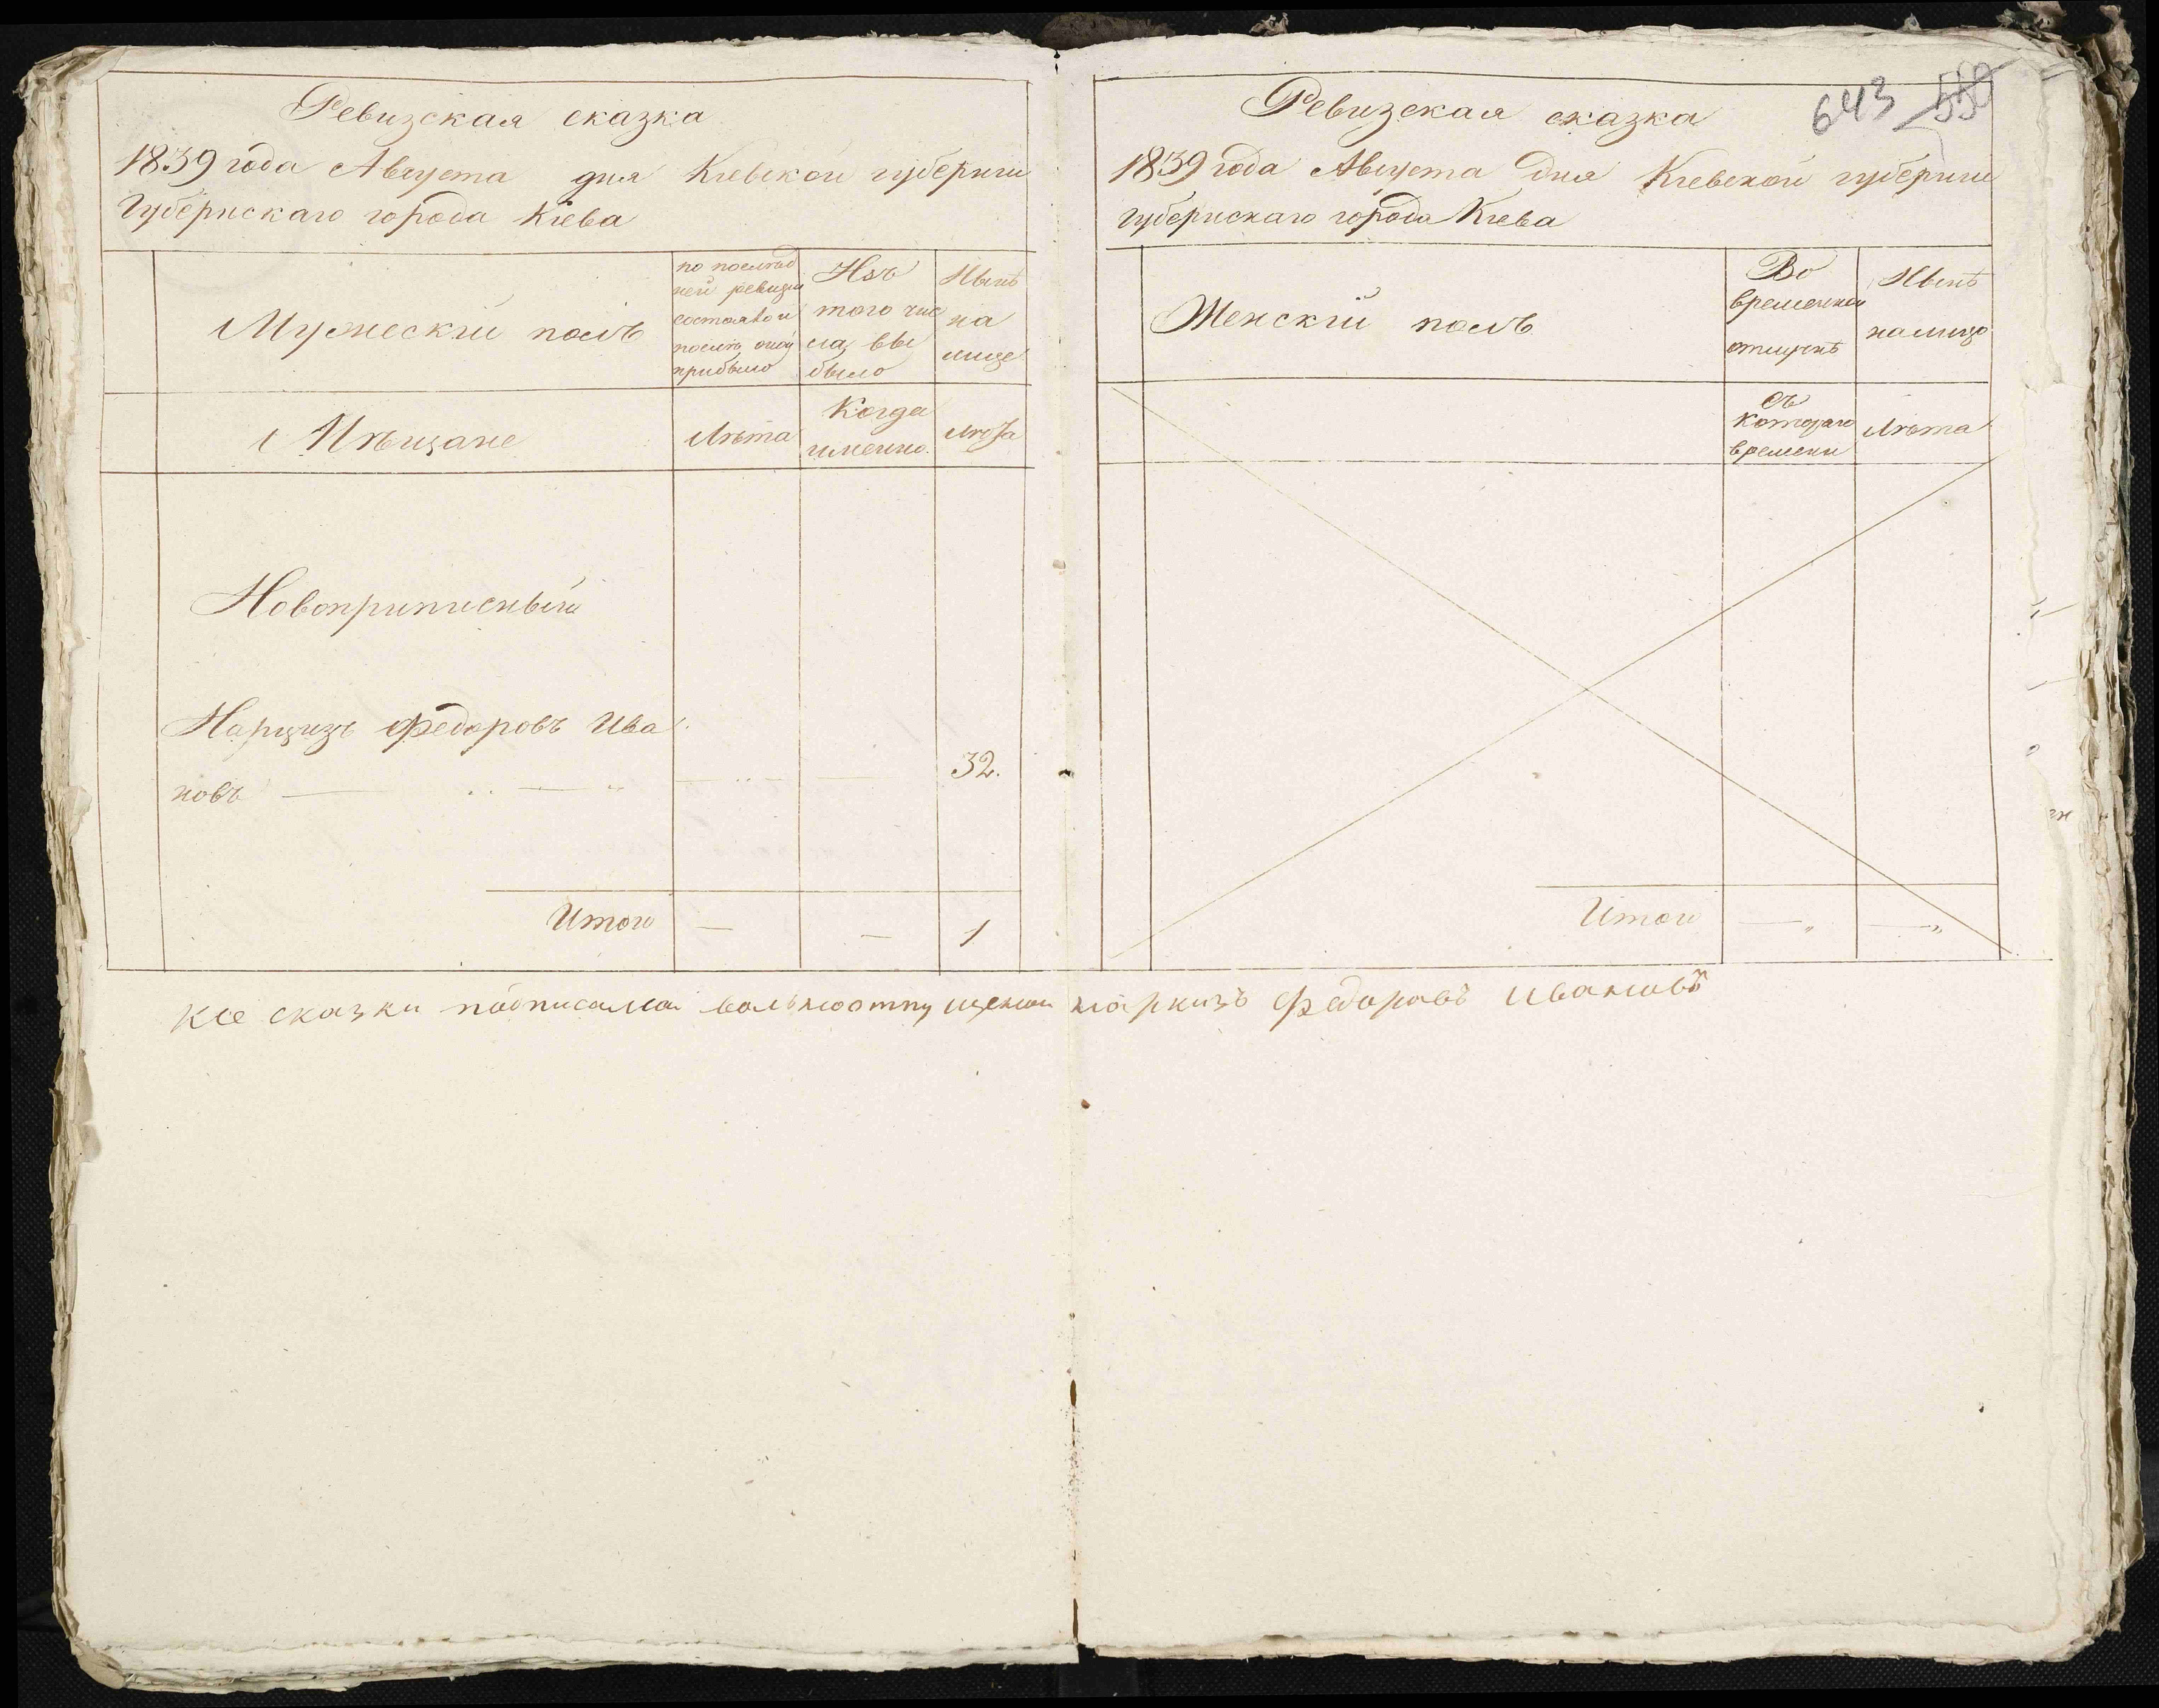 Ревизская сказка
1839 года Августа дня Кіевской губерніи
Губернскаго города Кіева
Мужескій полъ
по послѣд
ней ревизіи
состояло и
послѣ оной
прибыло
Изъ
того чис
ла вы
было
Нынѣ
на
лице
Мѣщане
Лѣта
Когда
именно.
Лѣта
Новоприписный
Нарцизъ Федоровъ Ива
новъ
32.
Итого
—
—
1
643 550
Ревизская сказка
1839 года Августа дня Кіевской губерніи
губернскаго города Кіева
Женскій полъ
Во
временной
отлучкѣ
Нынѣ
налицо
съ
котораго
времени
Лѣта
Итого
—„
—„
к се сказки подписался вольноотпущеной наркизъ Федоровъ Ивановъ